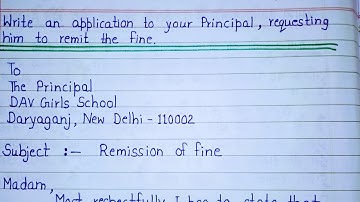 Write an application to your Principal, requesting
him to remit the fine.
To
The Principal
DAV Girls School
Daryaganj, New Delhi - 110002
Subject :- Remission of fine
Madam,
Most respectfully I beg to state that